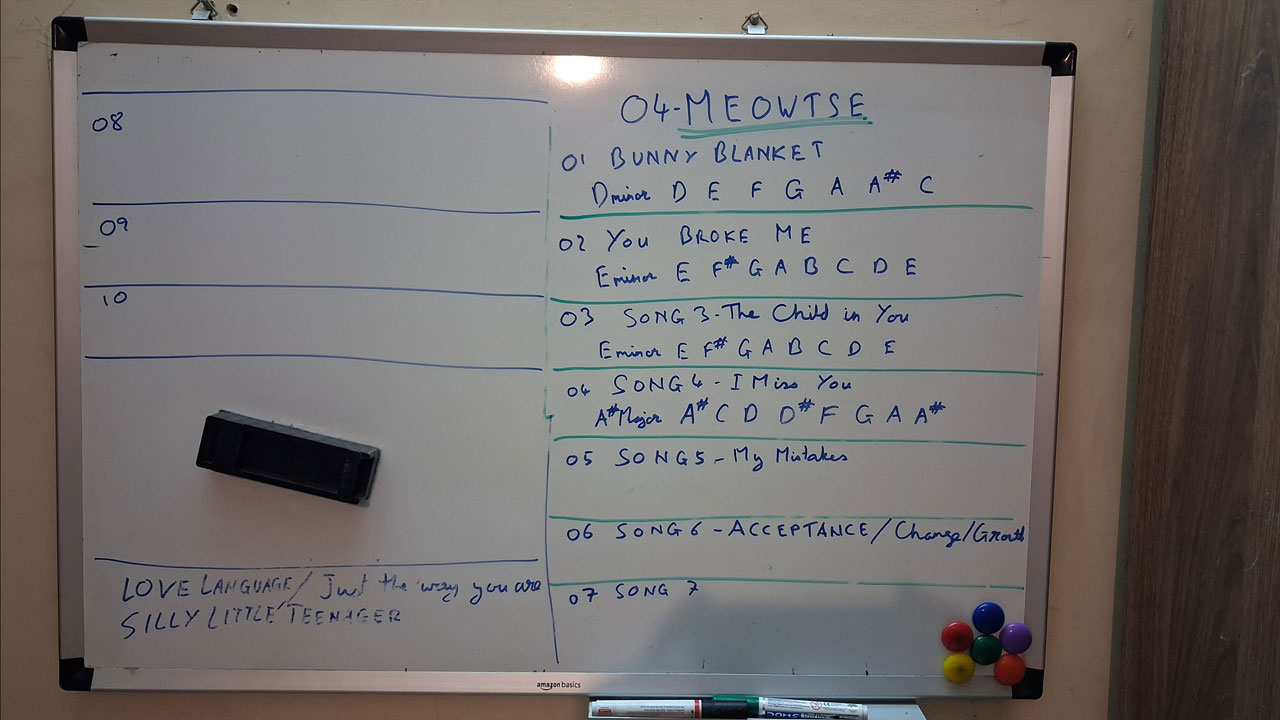 08
09
10
LOVE LANGUAGE/ Just the way you are
SILLY LITTLE TEENAGER
04-MEOWTSE
01 BUNNY BLANKET
Dminor D E F G A A# C
02 You BROKE ME
Eminor E F# G A B C D E
03 SONG 3-The Child in You
Eminor E F# G A B C D E
04 SONG 4 - I Miss You
A#Major A# C D D# F G A A#
05 SONG 5 - My Mistakes
06 SONG 6 - ACCEPTANCE/Change/Growth
07 SONG 7
amazon basics